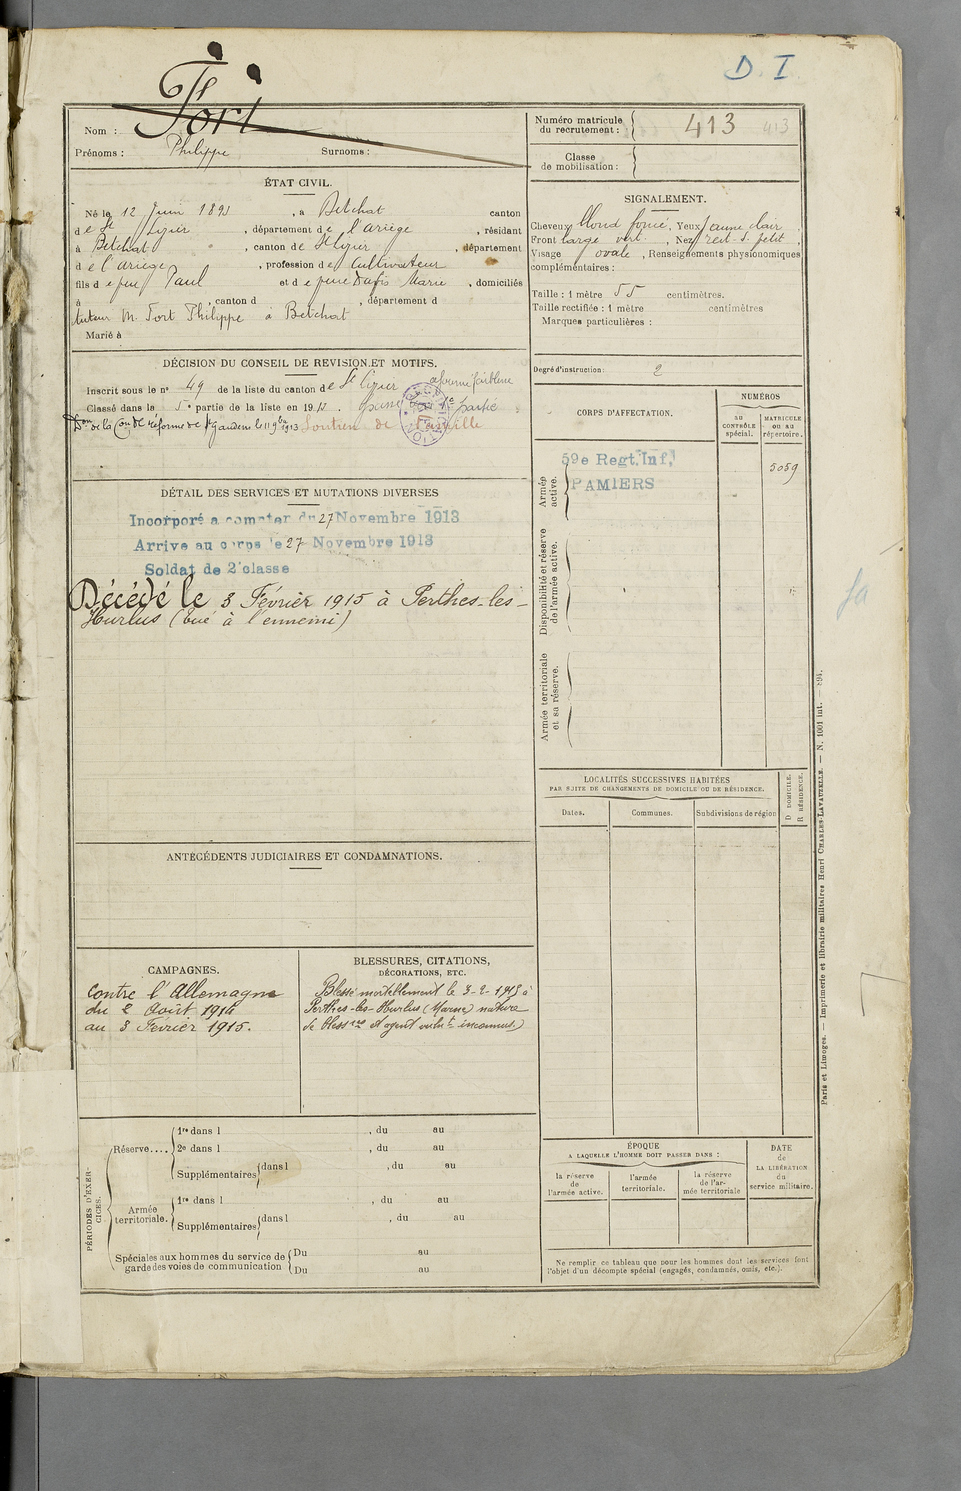 D. I.
Nom : Fort
Prénoms : Philippe Surnoms :
Numéro matricule du recrutement : 413 413
Classe de mobilisation :
ÉTAT CIVIL.
Né le 12 Juin 1893, à Betchat canton
de St Lizier, département de l'ariège, résidant
à Betchat, canton de St Lizier, département
de l'ariège, profession de Cultivateur
fils de feu Paul et de feue Marie, domiciliés
à , canton d , département d
tuteur M. Fort Philippe à Betchat
Marié à
SIGNALEMENT.
Cheveux blond foncé, Yeux jaune clair
Front large vert., Nez rect. s. petit,
Visage ovale, Renseignements physionomiques
complémentaires :
Taille : 1 mètre 55 centimètres.
Taille rectifiée : 1 mètre centimètres
Marques particulières :
Degré d'instruction : 2
DÉCISION DU CONSEIL DE REVISION ET MOTIFS.
Inscrit sous le n° 49 de la liste du canton de St Lizier
Classé dans la 5e partie de la liste en 1913. partie
Don de la Con de réforme de St Gaudens le 11 9bre 1913 Soutien de famille
DÉTAIL DES SERVICES ET MUTATIONS DIVERSES
Incorporé a compter du 27 Novembre 1913
Arrivé au corps le 27 Novembre 1913
Soldat de 2e classe
Décédé le 3 Février 1915 à Perthes-les-
Hurlus (tué à l'ennemi)
CORPS D'AFFECTATION.
NUMÉROS
au CONTRÔLE spécial.
MATRICULE ou au répertoire.
Armée active.
59e Regt. Inf.
PAMIERS
5059
Disponibilité et réserve de l'armée active.
Armée territoriale et sa réserve.
LOCALITÉS SUCCESSIVES HABITÉES
PAR SUITE DE CHANGEMENTS DE DOMICILE OU DE RÉSIDENCE.
Dates. Communes. Subdivisions de région
D DOMICILE.
R RÉSIDENCE.
ANTÉCÉDENTS JUDICIAIRES ET CONDAMNATIONS.
CAMPAGNES.
Contre l'Allemagne
du 2 Août 1914
au 3 Février 1915.
BLESSURES, CITATIONS,
DÉCORATIONS, ETC.
Blessé mortellement le 3-2-1915 à
Perthes-les-Hurlus (Marne) nature
de blessres et agent vulnt inconnus.)
PÉRIODES D'EXERCICES.
Réserve....
1re dans l , du au
2e dans l , du au
Supplémentaires dans l , du au
Armée territoriale.
1re dans l , du au
Supplémentaires dans l , du au
Spéciales aux hommes du service de
garde des voies de communication
Du au
Du au
ÉPOQUE
A LAQUELLE L'HOMME DOIT PASSER DANS :
la réserve de l'armée active.
l'armée territoriale.
la réserve de l'armée territoriale
DATE de LA LIBÉRATION du service militaire.
Ne remplir ce tableau que pour les hommes dont les services font
l'objet d'un décompte spécial (engagés, condamnés, omis, etc.).
Paris et Limoges. — Imprimerie et librairie militaires Henri CHARLES-LAVAUZELLE. — N. 1001 int.